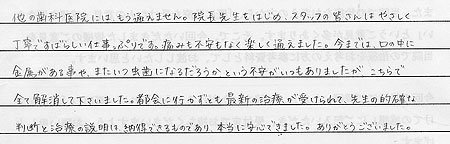 他の歯科医院には、もう通えません。院長先生をはじめ、スタッフの皆さんはやさしく
丁寧ですばらしい仕事っぷりです。痛みも不安もなく楽しく通えました。今までは、口の中に
金属がある事や、またいつ虫歯になるだろうかという不安がいつもありましたが、こちらで
全て解消して下さいました。都会に行かずとも最新の治療が受けられて、先生の的確な
判断と治療の説明は、納得できるものであり、本当に安心できました。ありがとうございました。